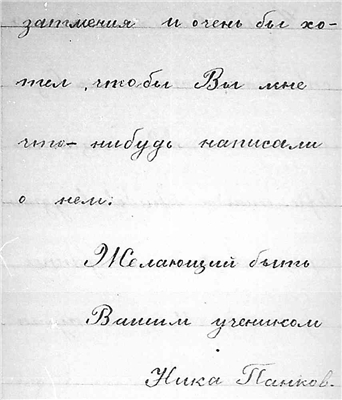 затмения и очень бы хо-
тел, чтобы Вы мне
что-нибудь написали
о нем.
Желающий быть
Вашим учеником
Ника Панков.